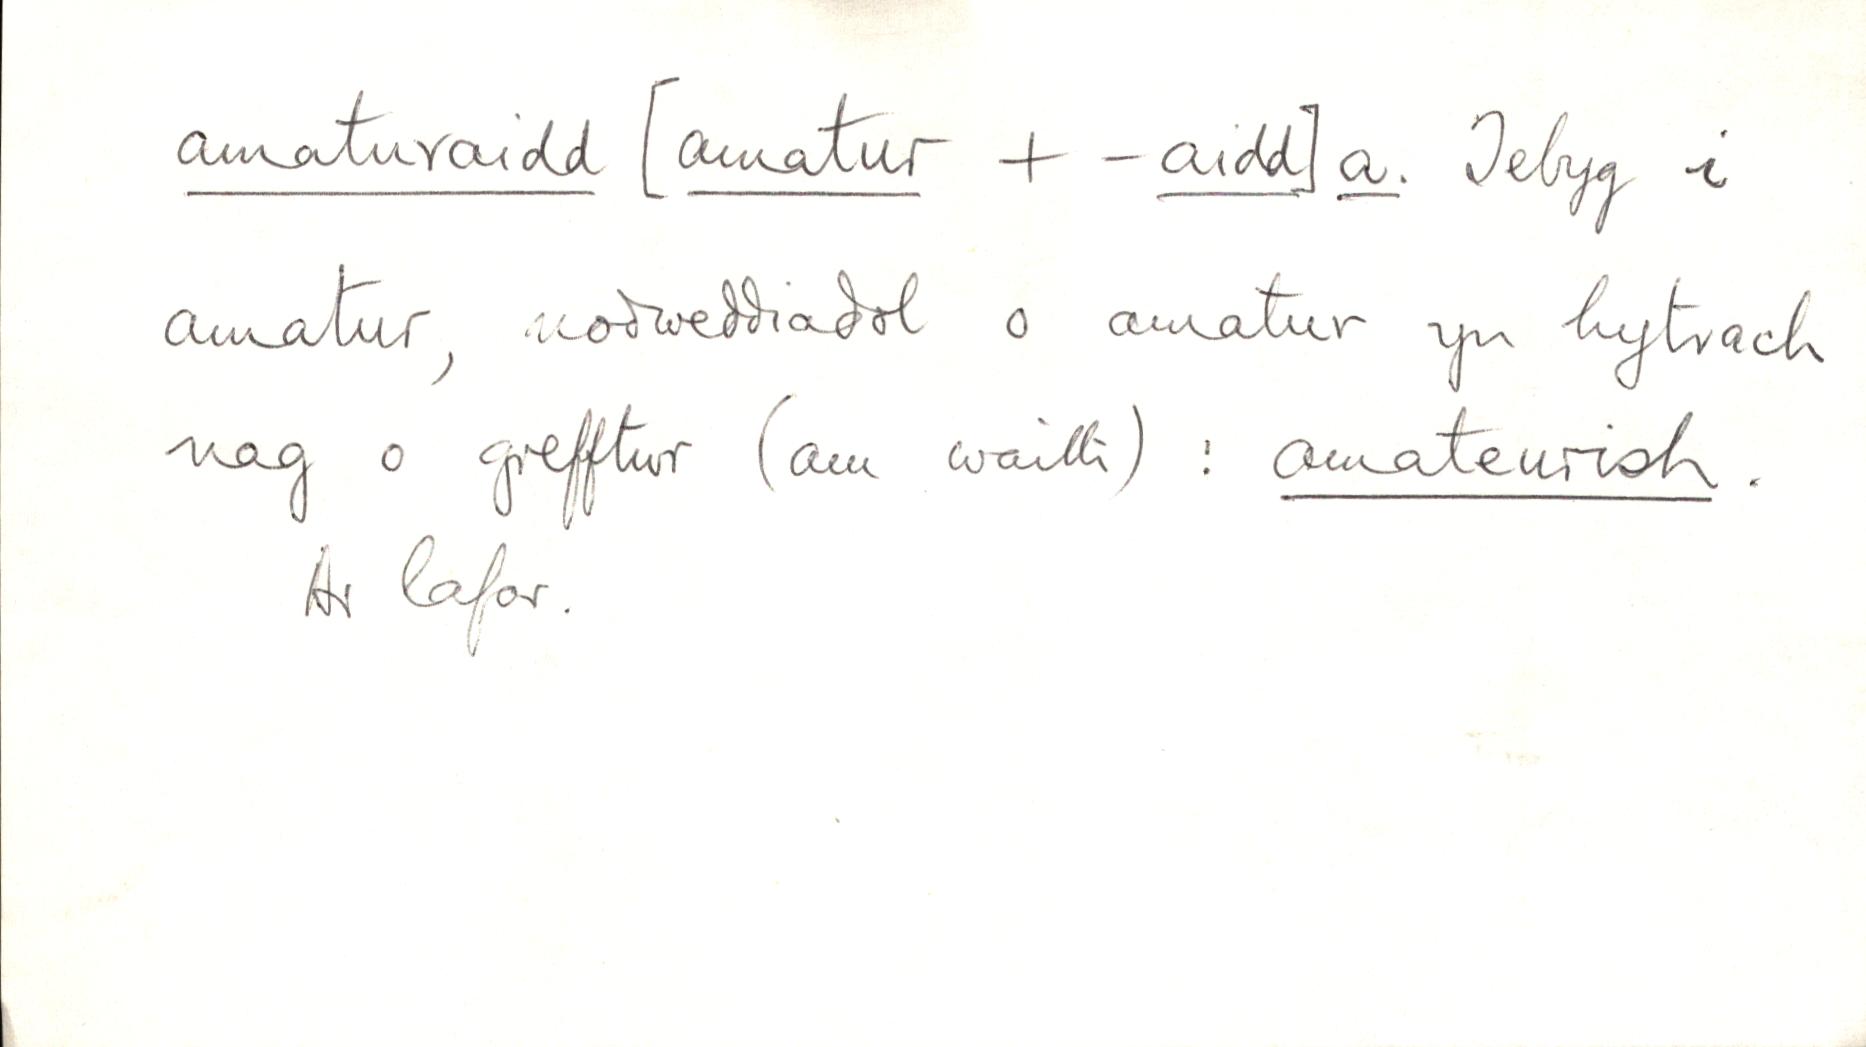 amaturaidd [amatur + -aidd] a. Tebyg i
amatur, nodweddiadol o amatur yn hytrach
nag o grefftwr (am waith) : amateurish.
Ar lafar.